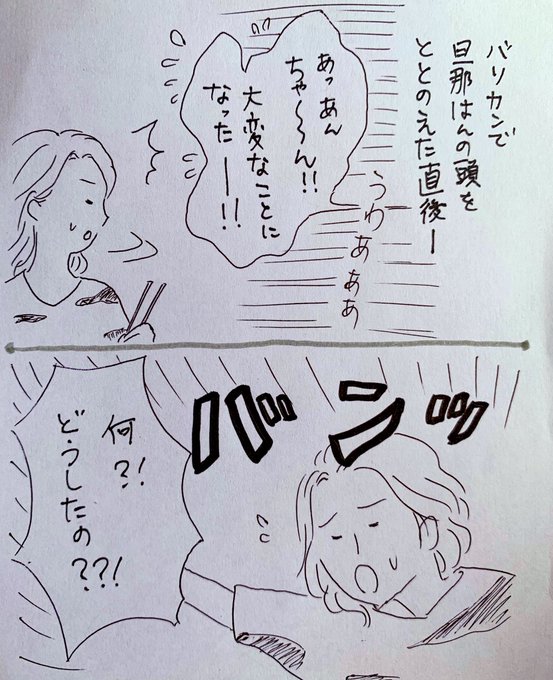 バリカンで
旦那はんの頭を
ととのえた直後ー
あっあん
ちゃ〜〜ん!!
大変なことに
なったーー!!
うわあああ
バンッ
何?!
どうしたの??!